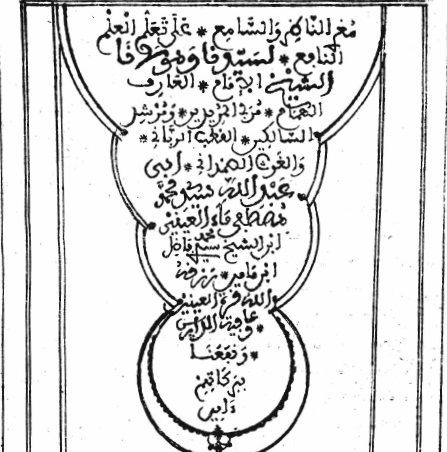 مغر الناظر والسامع * على تعلم العلم
النافع * لسيدنا ومولانا
الشيخ الإمام * العارف
الهمام * مربي المريدين * ومرشد
السالكين * القطب الرباني *
والغوث الصمداني * أبي
عبد الله سيد محمد
مصطفى ماء العينين
ابن الشيخ سيدي محمد فاضل
ابن مامين * رزقه
الله قرة العينين
وعافية الدارين
* ونفعنا
ببركاتهم
ءامين